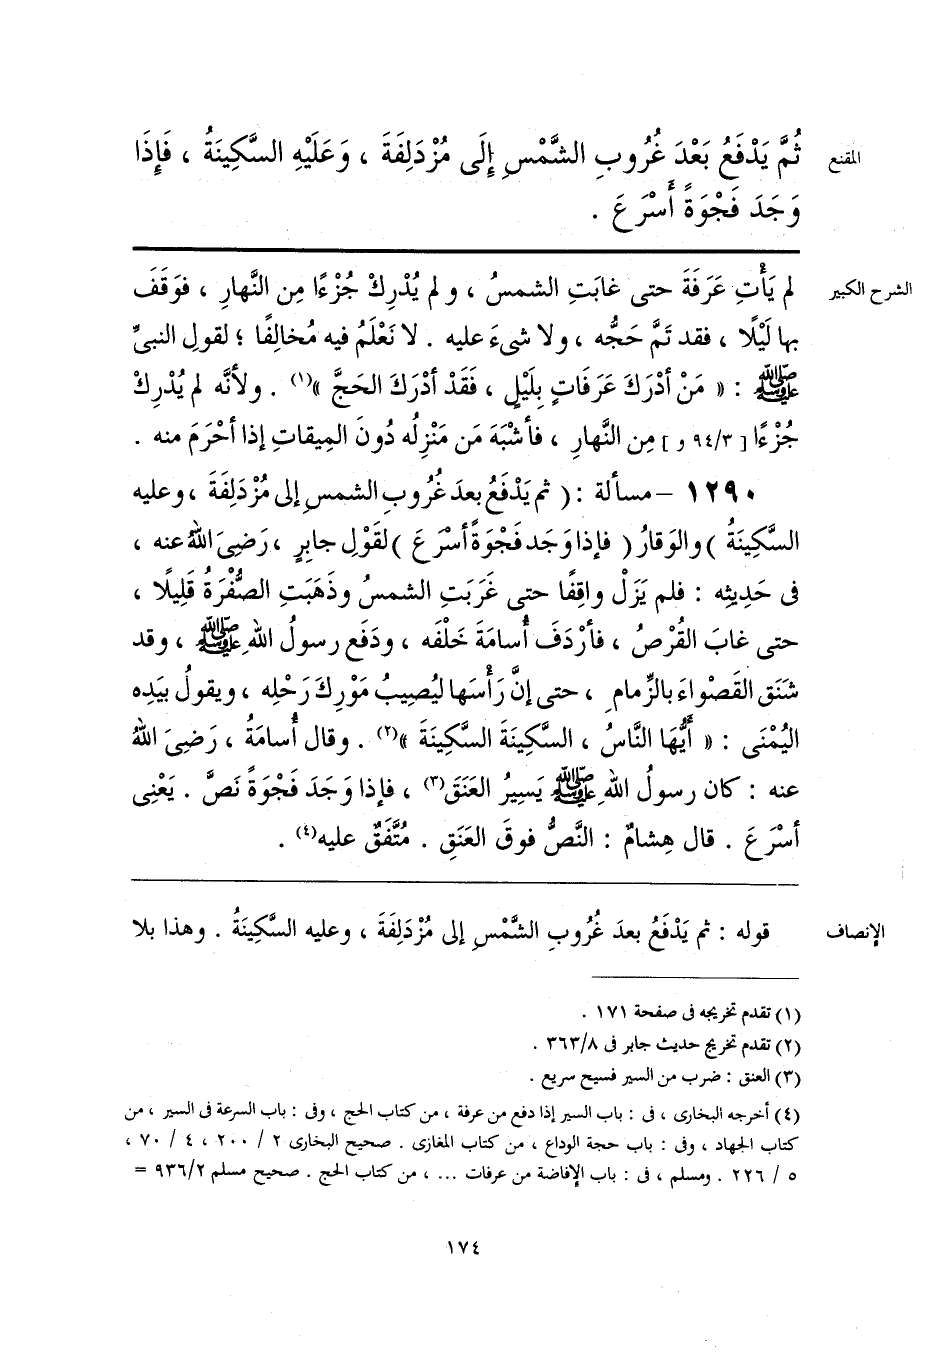 المقنع
ثُمَّ يَدْفَعُ بَعْدَ غُرُوبِ الشَّمْسِ إِلَى مُزْدَلِفَةَ ، وَعَلَيْهِ السَّكِينَةُ ، فَإِذَا
وَجَدَ فَجْوَةً أَسْرَعَ .
الشرح الكبير
لم يَأْتِ عَرَفَةَ حتى غابَتِ الشمسُ ، ولم يُدْرِكْ جُزْءًا مِن النَّهارِ ، فوَقَفَ
بها لَيْلًا ، فقد تَمَّ حَجُّه ، ولا شىءَ عليه . لا نَعْلَمُ فيه مُخالِفًا ؛ لقولِ النبىِّ
ﷺ : « مَنْ أدْرَكَ عَرَفَاتٍ بِلَيْلٍ ، فَقَدْ أدْرَكَ الحَجَّ »(١) . ولأنَّه لم يُدْرِكْ
جُزْءًا [ ٩٤/٣ و ] مِن النَّهارِ ، فأشْبَهَ مَن مَنْزِلُه دُونَ المِيقاتِ إذا أحْرَمَ منه .
١٢٩٠ – مسألة : ( ثم يَدْفَعُ بعدَ غُرُوبِ الشمسِ إلى مُزْدَلِفَةَ ، وعليه
السَّكِينَةُ ) والوَقارُ ( فإذا وَجَد فَجْوَةً أسْرَعَ ) لقَوْلِ جابِرٍ ، رَضِىَ اللهُ عنه ،
فى حَدِيثِه : فلم يَزَلْ واقِفًا حتى غَرَبَتِ الشمسُ وذَهَبَتِ الصُّفْرَةُ قَلِيلًا ،
حتى غابَ القُرْصُ ، فأرْدَفَ أُسامَةَ خَلْفَه ، ودَفَع رسولُ اللهِ ﷺ ، وقد
شَنَق القَصْواءَ بالزِّمامِ ، حتى إنَّ رَأْسَها ليُصِيبُ مَوْرِكَ رَحْلِه ، ويقولُ بيَدِه
اليُمْنَى : « أيُّهَا النَّاسُ ، السَّكِينَةَ السَّكِينَةَ »(٢) . وقال أُسامَةُ ، رَضِىَ اللهُ
عنه : كان رسولُ اللهِ ﷺ يَسِيرُ العَنَقَ(٣) ، فإذا وَجَدَ فَجْوَةً نَصَّ . يَعْنِى
أسْرَعَ . قال هِشامٌ : النَّصُّ فوقَ العَنَقِ . مُتَّفَقٌ عليه(٤) .
الإنصاف
قوله : ثم يَدْفَعُ بعدَ غُرُوبِ الشَّمْسِ إلى مُزْدَلِفَةَ ، وعليه السَّكِينَةُ . وهذا بلا
(١) تقدم تخريجه فى صفحة ١٧١ .
(٢) تقدم تخريج حديث جابر فى ٣٦٣/٨ .
(٣) العنق : ضرب من السير فسيح سريع .
(٤) أخرجه البخارى ، فى : باب السير إذا دفع من عرفة ، من كتاب الحج ، وفى : باب السرعة فى السير ، من
كتاب الجهاد ، وفى : باب حجة الوداع ، من كتاب المغازى . صحيح البخارى ٢ / ٢٠٠ ، ٤ / ٧٠ ،
٥ / ٢٢٦ . ومسلم ، فى : باب الإفاضة من عرفات ... ، من كتاب الحج . صحيح مسلم ٩٣٦/٢ =
١٧٤